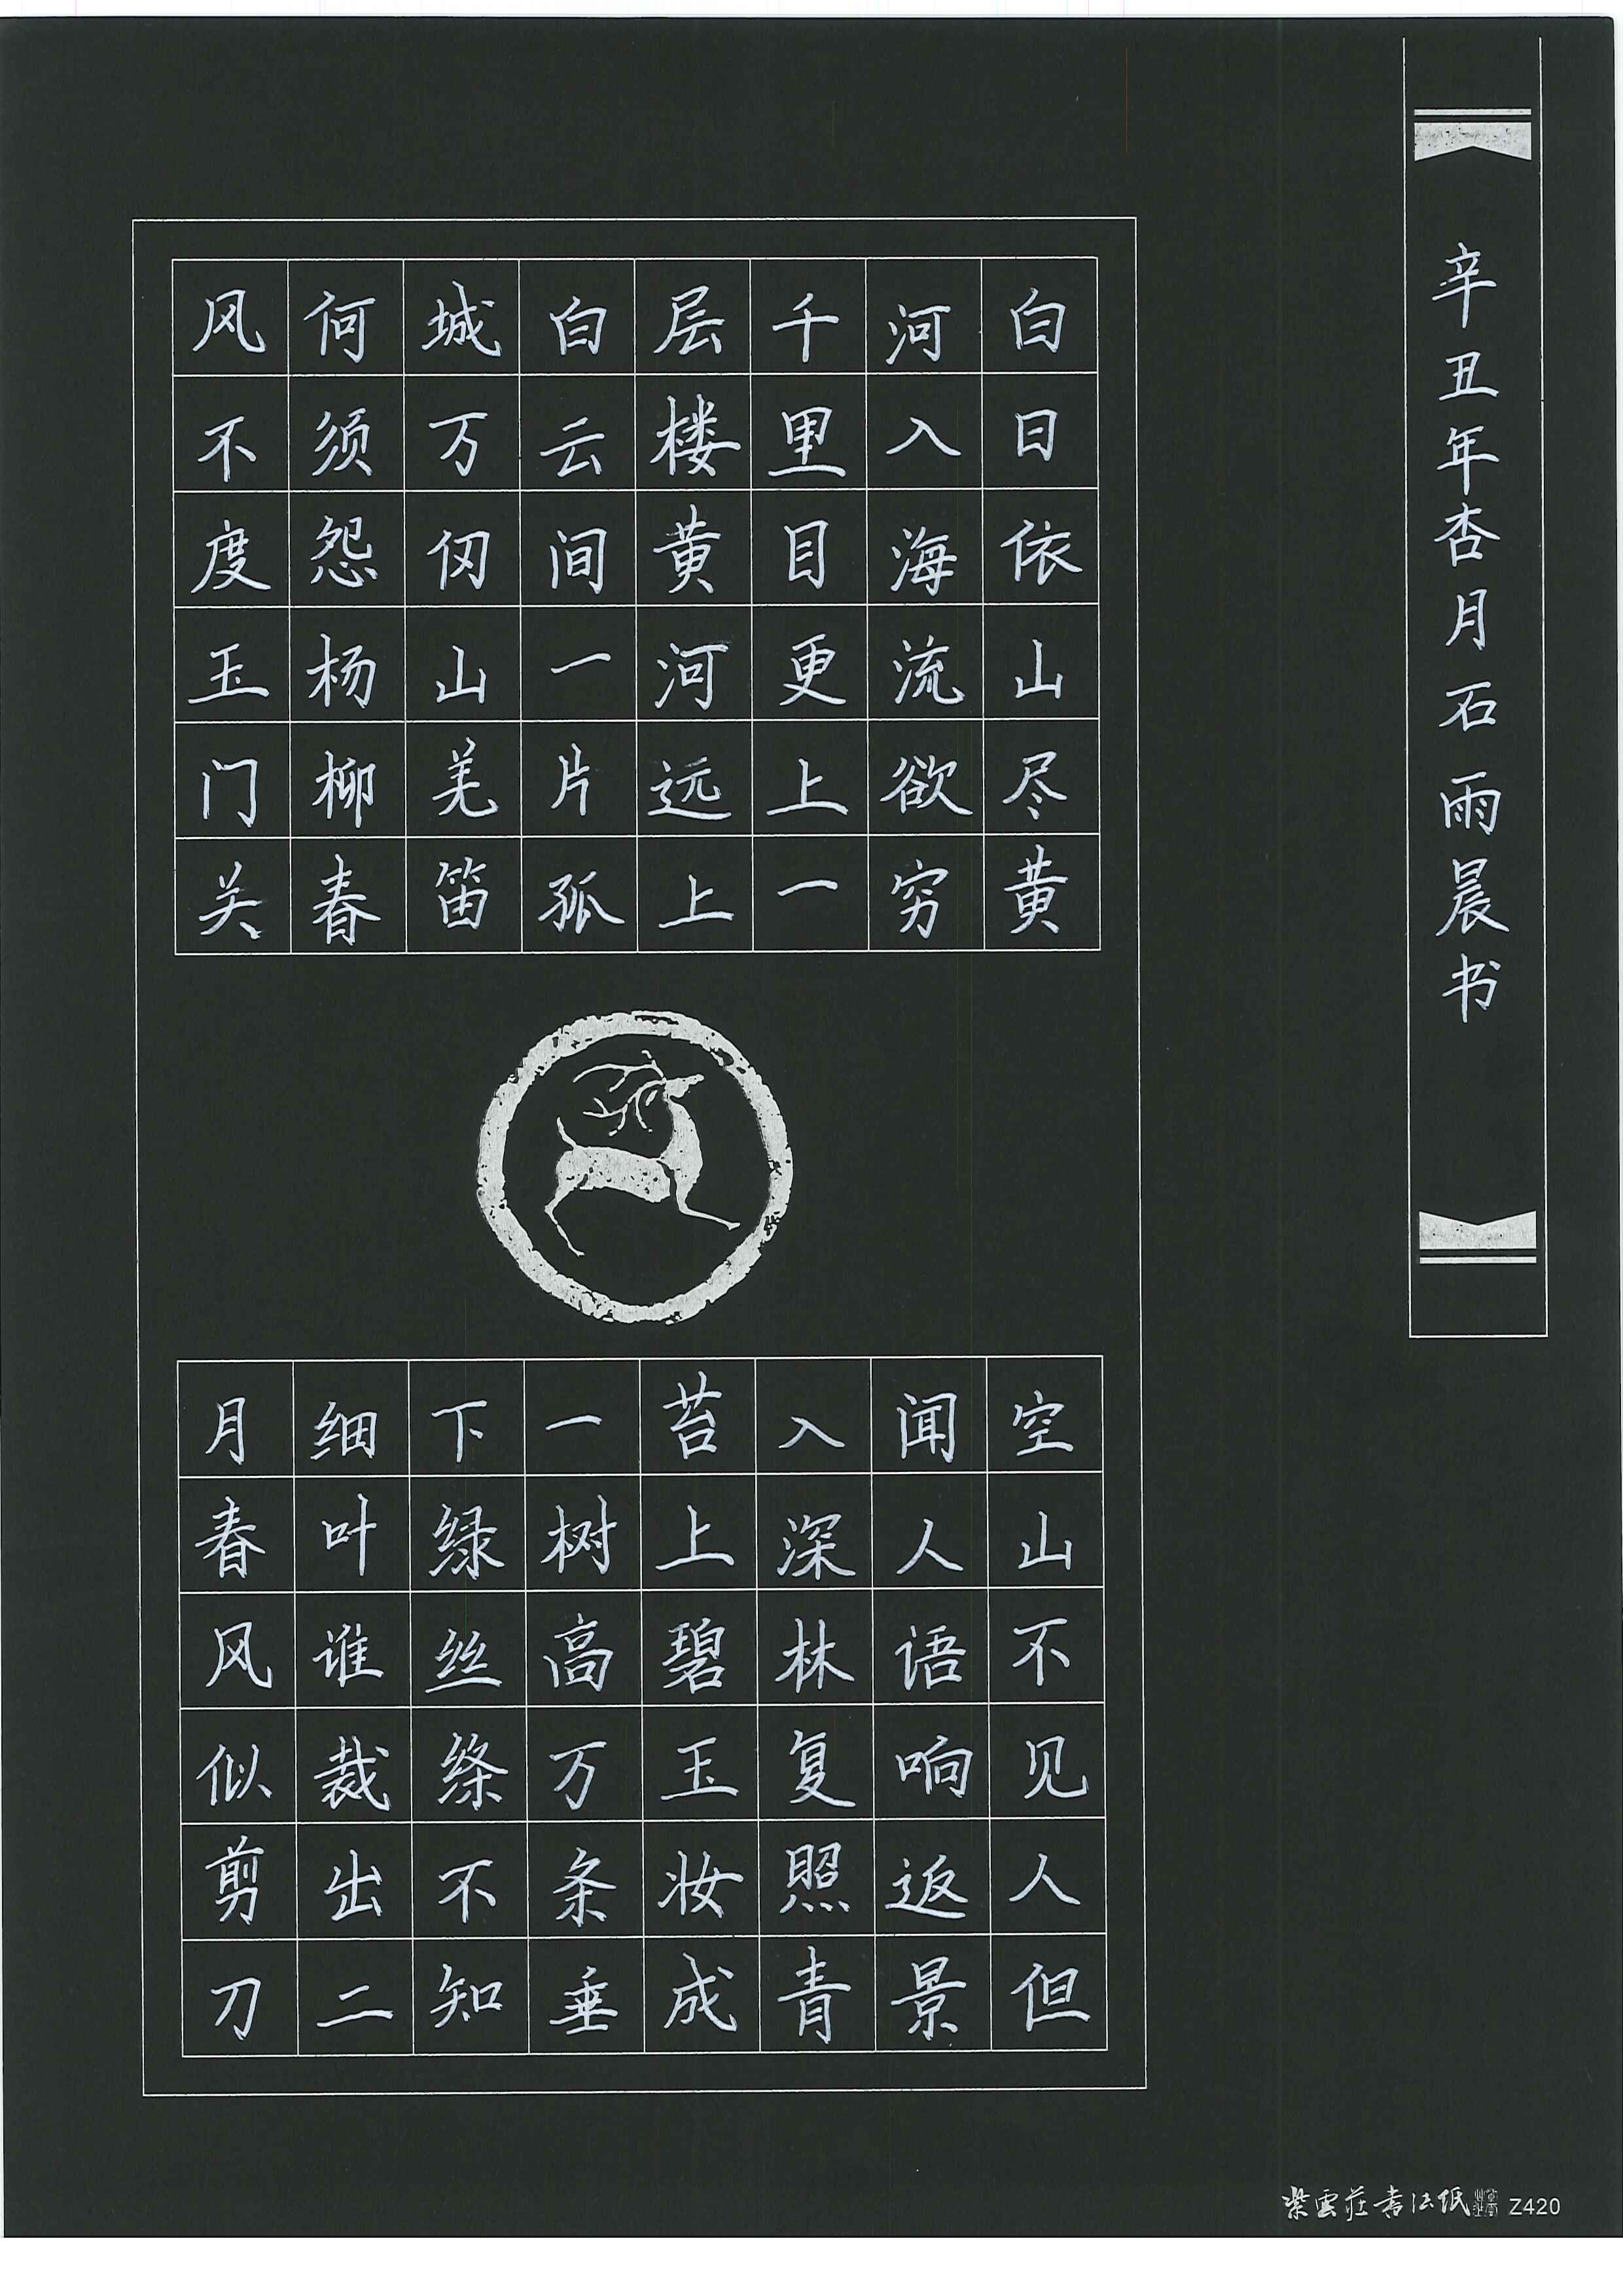 辛丑年杏月石雨晨书
白日依山尽黄
河入海流欲穷
千里目更上一
层楼黄河远上
白云间一片孤
城万仞山羌笛
何须怨杨柳春
风不度玉门关
空山不见人但
闻人语响返景
入深林复照青
苔上碧玉妆成
一树高万条垂
下绿丝绦不知
细叶谁裁出二
月春风似剪刀
紫雲莊書法纸 Z420